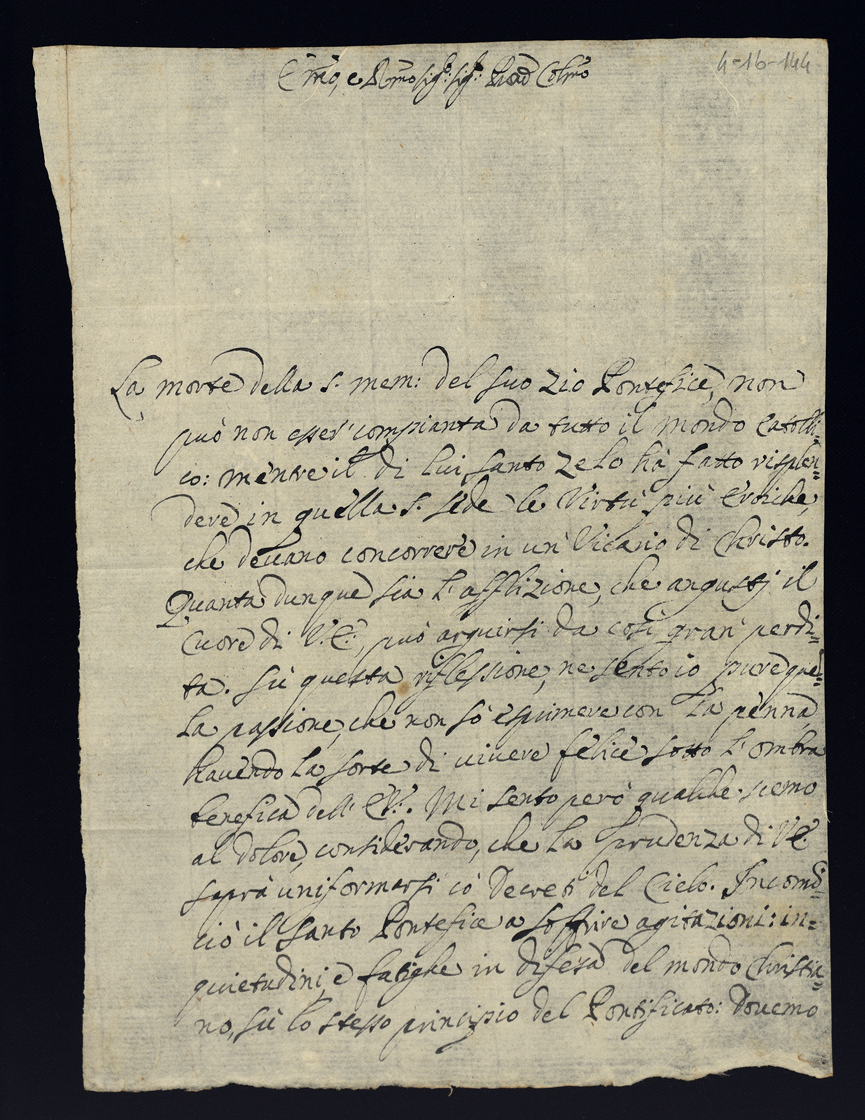 4-16-144
Em̃o, e Rm̃o Sig.r Sig.r Pron̄ Colm̃o
La morte della s. mem: del suo Zio Pontefice, non
può non esser compianta da tutto il mondo Catoli=
co: mentre il di lui santo Zelo hà fatto risplen=
dere in quella S. Sede le Virtù più Eroiche,
che devano concorrere in un Vicario di Christo.
Quanta dunque sia l'afflizione, che angustj il
Cuore di V.E., può arguirsi da così gran perdi=
ta. Sù questa riflessione, ne sento io pure quel=
la passione, che non sò esprimere con la penna,
havendo la sorte di vivere felice sotto l'ombra
benefica dell' E.V. Mi sento però qualche scemo
al dolore, considerando, che la prudenza di V.E.
saprà uniformarsi cò Decreti del Cielo. Incomī=
ciò il Santo Pontefice a soffrire agitazioni: in=
quietudini, e fatighe in difesa del mondo Christia=
no, sù lo stesso principio del Pontificato: Dovemo